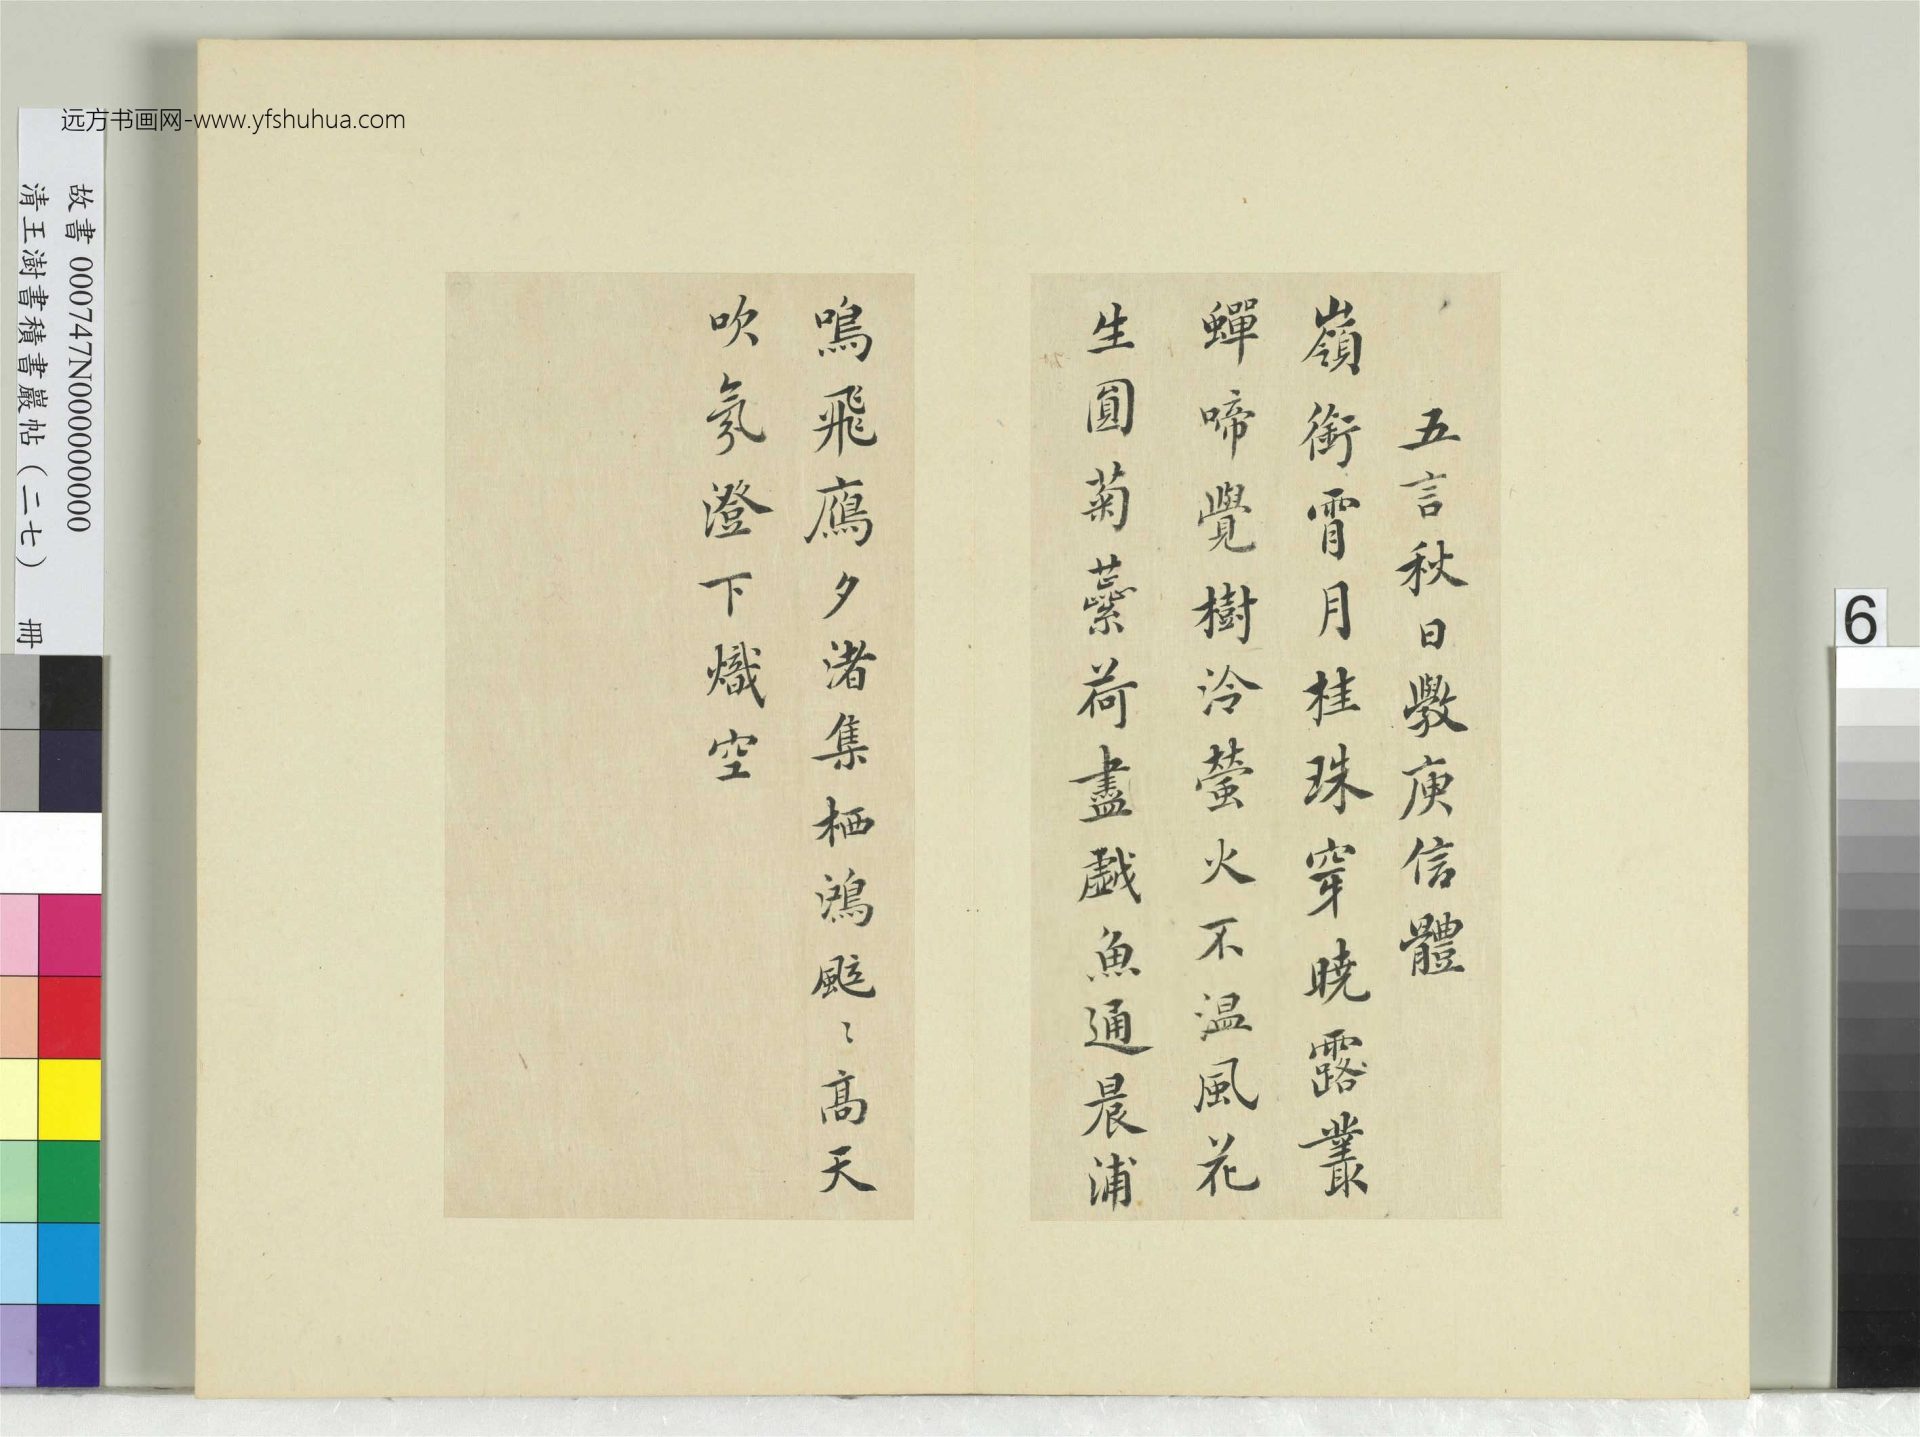 五言秋日斆庾信體
嶺銜霄月桂珠穿曉露叢
蟬啼覺樹冷螢火不温風花
生圓菊蘂荷盡戲魚通晨浦
鳴飛鴈夕渚集栖鴻颭〻高天
吹氛澄下熾空
远方书画网-www.yfshuhua.com
故書 000747N000000000
清王澍書積書巖帖（二七） 冊
6